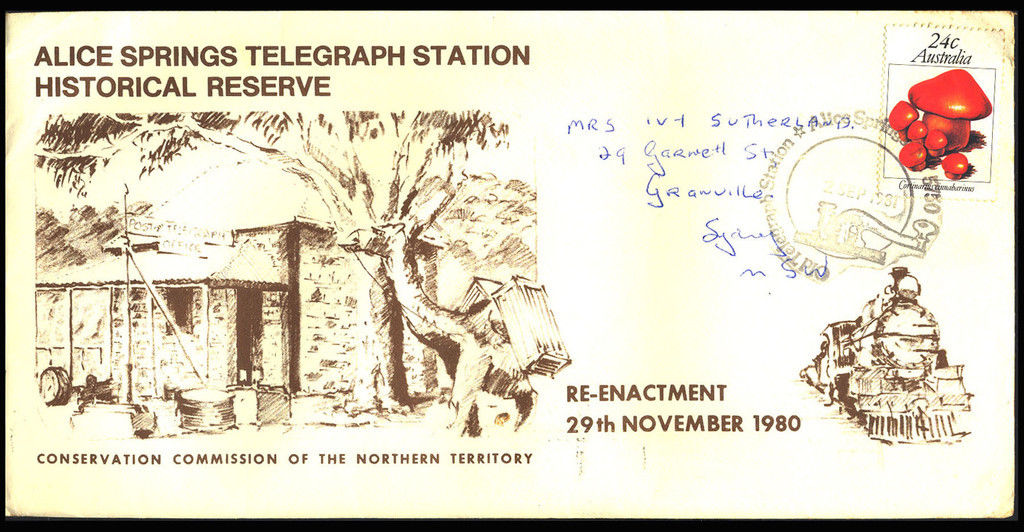 ALICE SPRINGS TELEGRAPH STATION
HISTORICAL RESERVE
24c
Australia
Coprinarius cinnabarinus
MRS IVY SUTHERLAND.
29 Garnett St
Granville
Sydney
NSW
Old Telegraph Station ☆ Alice Springs 5750
SEP 1981
POST & TELEGRAPH
OFFICE
RE-ENACTMENT
29th NOVEMBER 1980
CONSERVATION COMMISSION OF THE NORTHERN TERRITORY